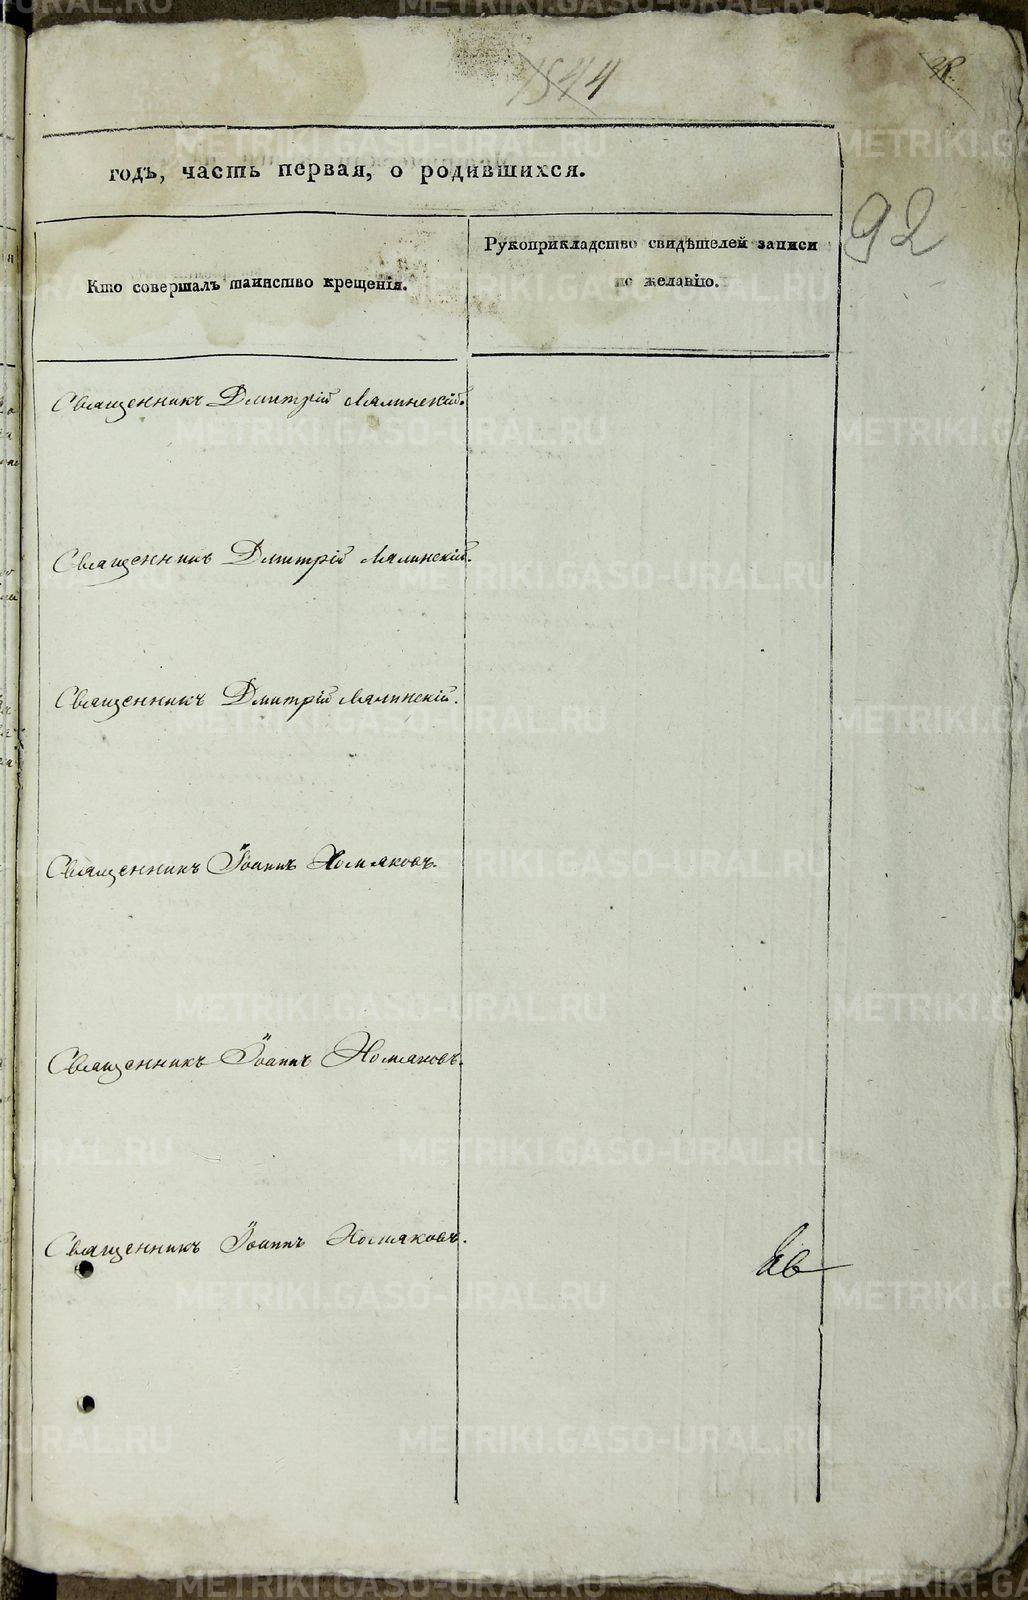 1844
92
годъ, часть первая, о родившихся.
Кто совершалъ таинство крещенія.
Рукоприкладство свидѣтелей записи
по желанію.
Священникъ Дмитрій Малинскій.
Священникъ Дмитрій Малинскій.
Священникъ Дмитрій Малинскій.
Священникъ Іоаннъ Хомяковъ.
Священникъ Іоаннъ Хомяковъ.
Священникъ Іоаннъ Хомяковъ.
METRIKI.GASO-URAL.RU